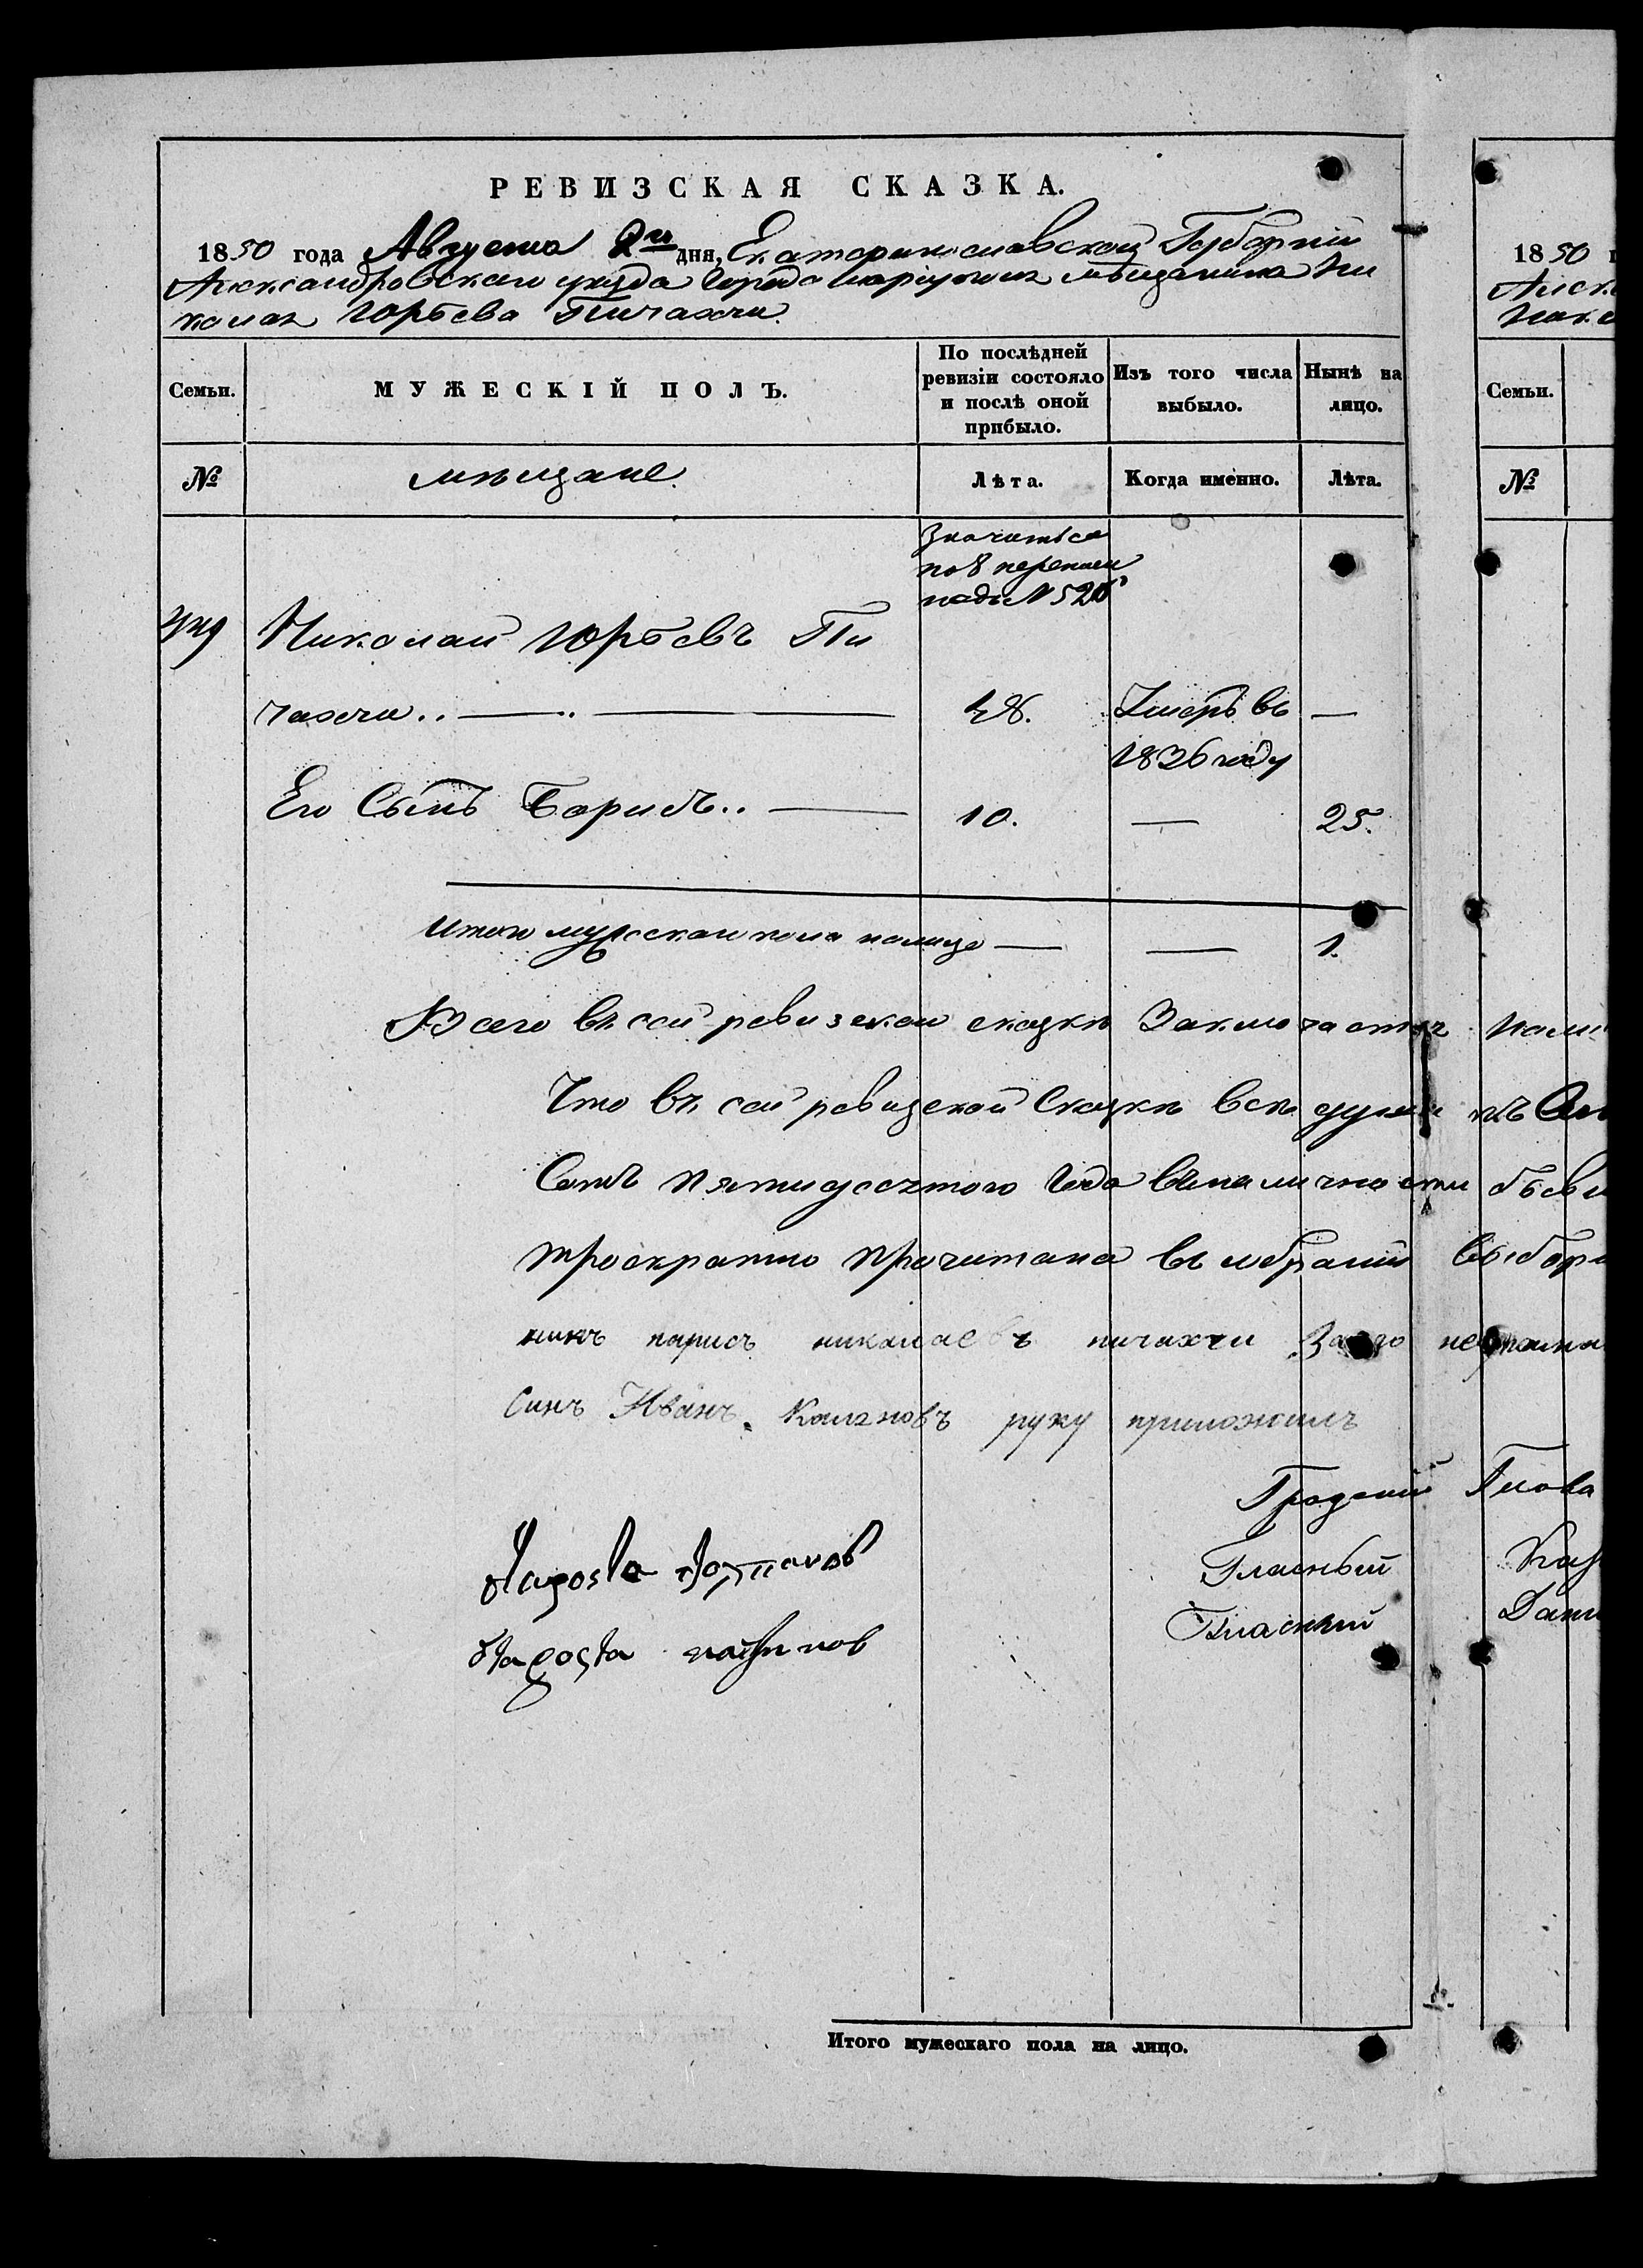 РЕВИЗСКАЯ СКАЗКА.
1850 года Августа 2го дня, Екатеринославской Губерніи
Александровскаго уезда Города Маріуполя мѣщанина Ни
колая Юрьева Пичахчи.
Семьи.
МУЖЕСКІЙ ПОЛЪ.
По послѣдней ревизіи состояло и послѣ оной прибыло.
Изъ того числа выбыло.
Нынѣ на лицо.
№
мѣщане.
Лѣта.
Когда именно.
Лѣта.
Значиться
по 8 переписи
подъ №
Николай Юрьевъ Пи
чахчи.. — 48. Умеръ въ —
1836 году
Его Сынъ Борисъ.. — 10. — 25.
Итого мужескаго пола налицо — — 1.
Всего въ сей ревизской сказки Заключается
Что въ сей ревизской Сказки всѣ души
Сотъ пятидесятого Года въ наличности
троекратно прочитана въ собраніи
нинъ парисъ николаевъ пичахчи За его
Синъ Иванъ руку приложилъ
Градской Глова
Гласный
Гласный
Итого мужескаго пола на лицо.
1850
Семьи.
№